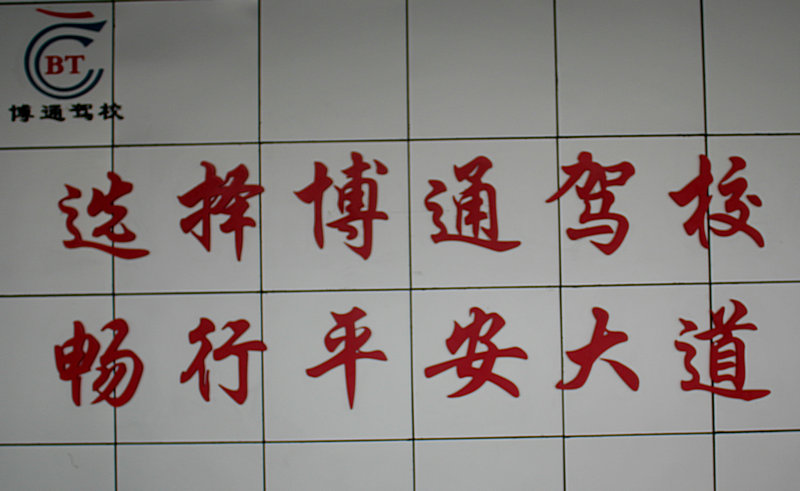 BT
博通驾校
选择博通驾校
畅行平安大道